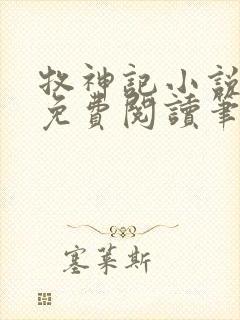 牧神記小說
免費閱讀筆
塞萊斯